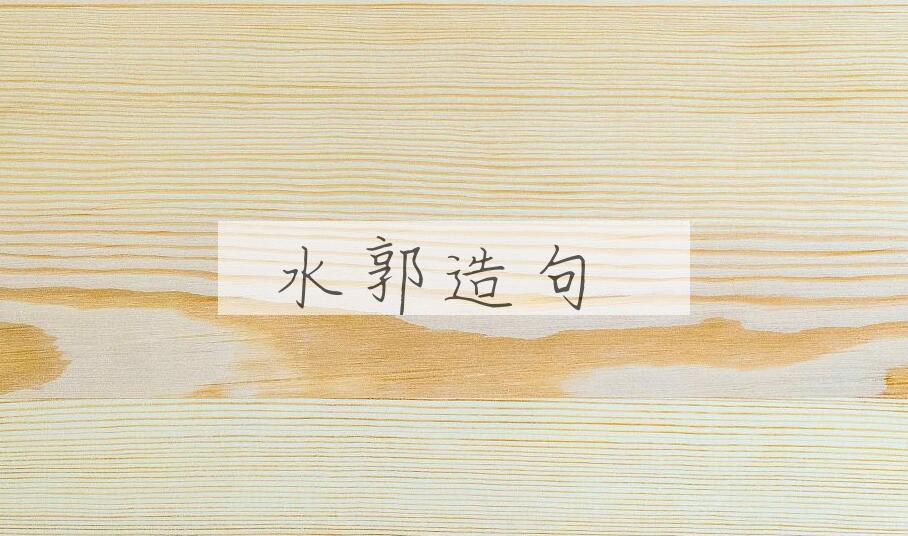 水郭造句